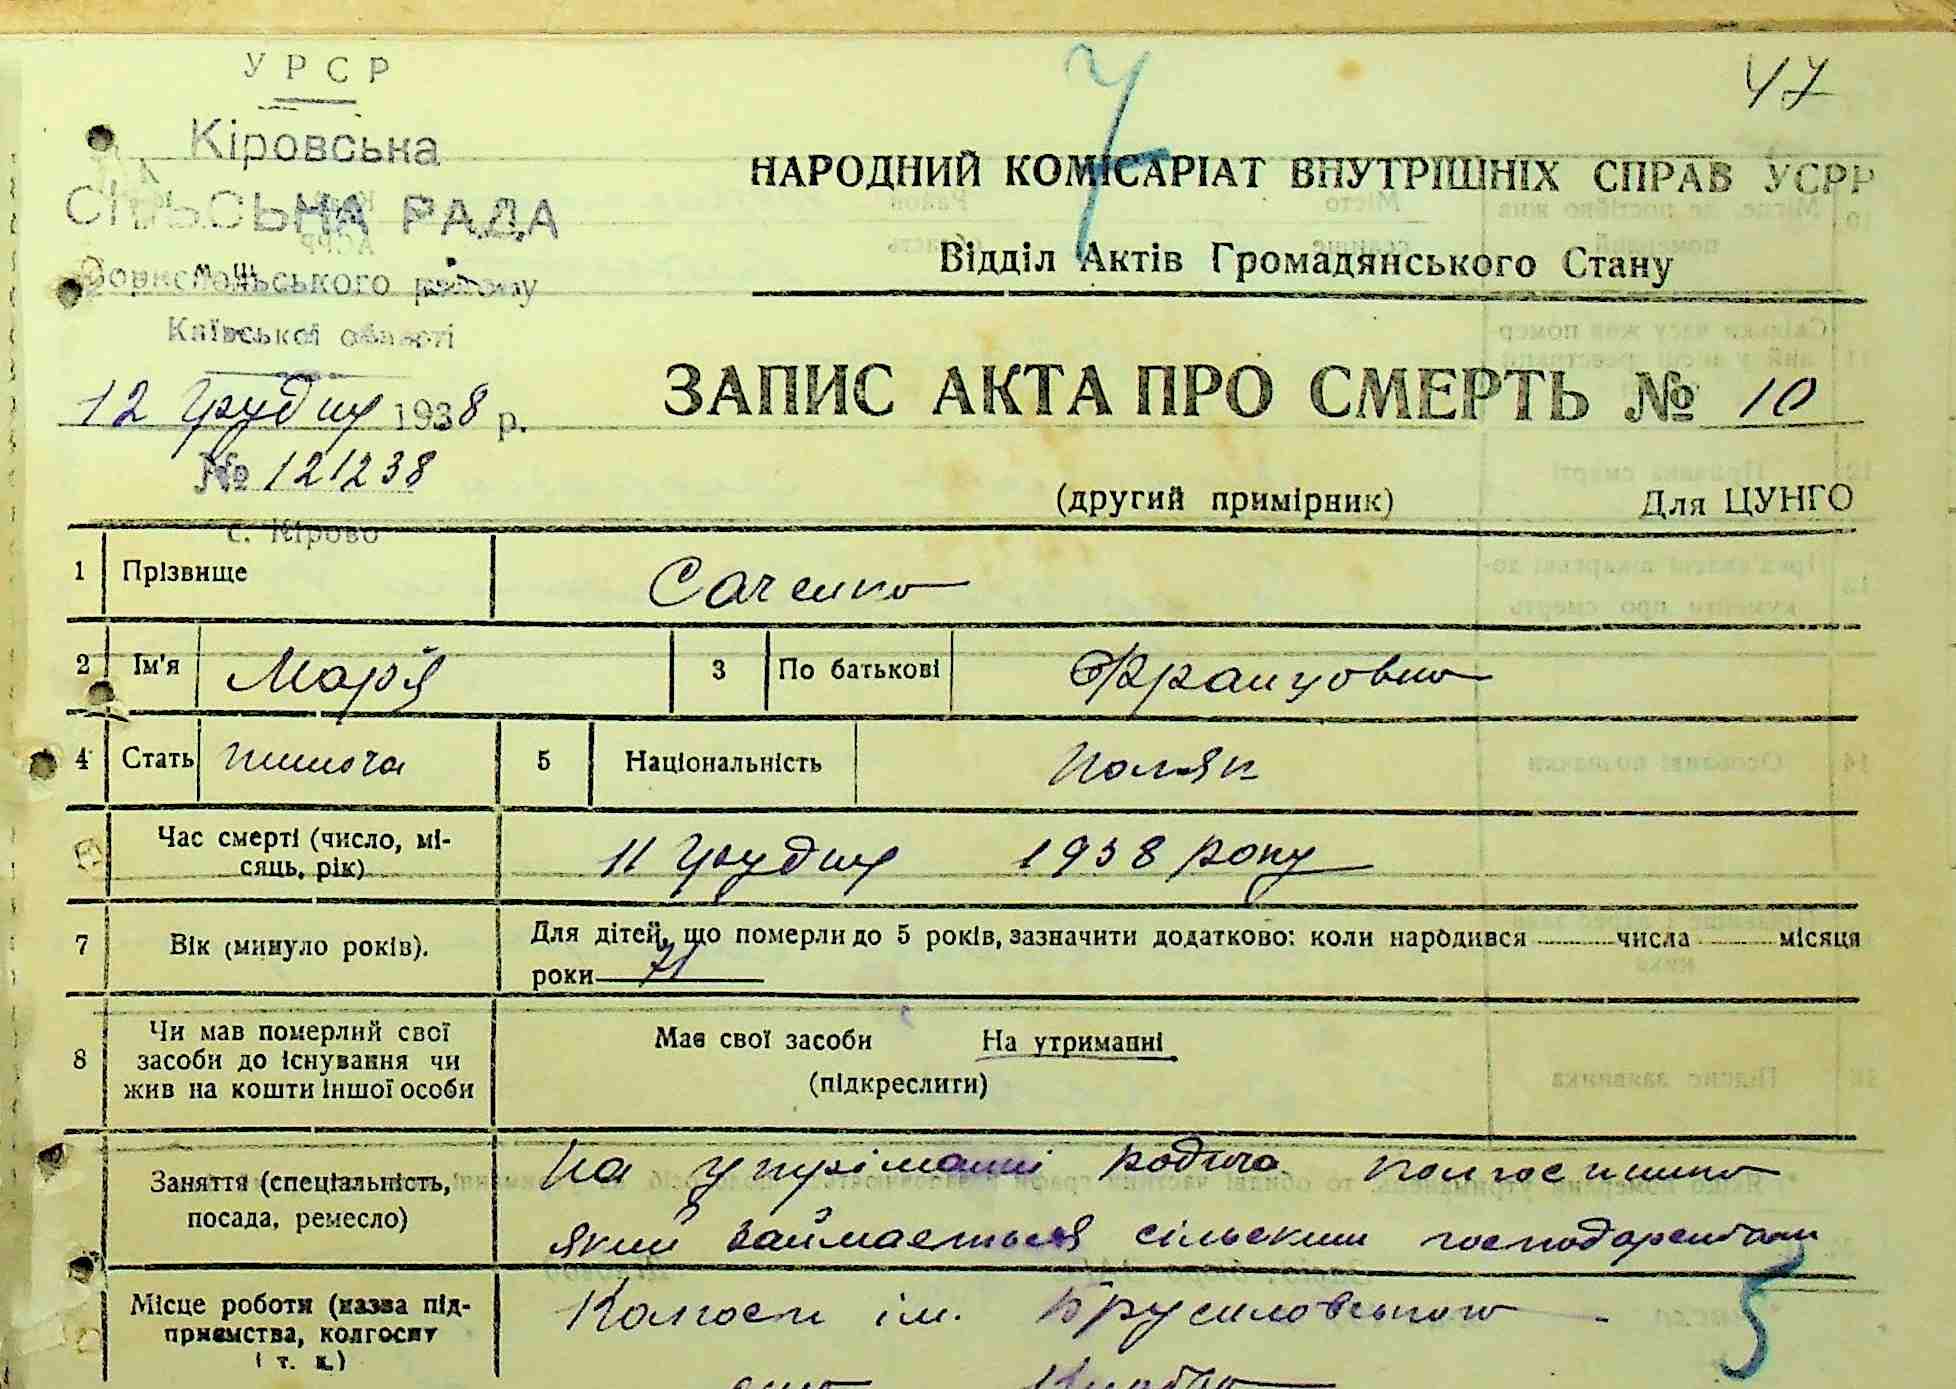 УРСР
47
Кіровська
СІЛЬСЬКА РАДА
Київської області
12 грудня 1938 р.
№ 121238
с. Кірово
НАРОДНИЙ КОМІСАРІАТ ВНУТРІШНІХ СПРАВ УСРР
Відділ Актів Громадянського Стану
ЗАПИС АКТА ПРО СМЕРТЬ № 10
(другий примірник) Для ЦУНГО
1 Прізвище Саченко
2 Ім'я Марія 3 По батькові Францовна
4 Стать жіноча 5 Національність поляк
Час смерті (число, мі-
сяць, рік) 11 грудня 1938 року
7 Вік (минуло років). Для дітей, що померли до 5 років, зазначити додатково: коли народився числа місяця
роки 71
8 Чи мав померлий свої
засоби до існування чи
жив на кошти іншої особи
Має свої засоби На утриманні
(підкреслити)
Заняття (спеціальність,
посада, ремесло)
На утріманні родича колгоспника
який займається сільским господарством
Місце роботи (назва під-
приємства, колгоспу
і т. і.)
Колгосп ім.
5